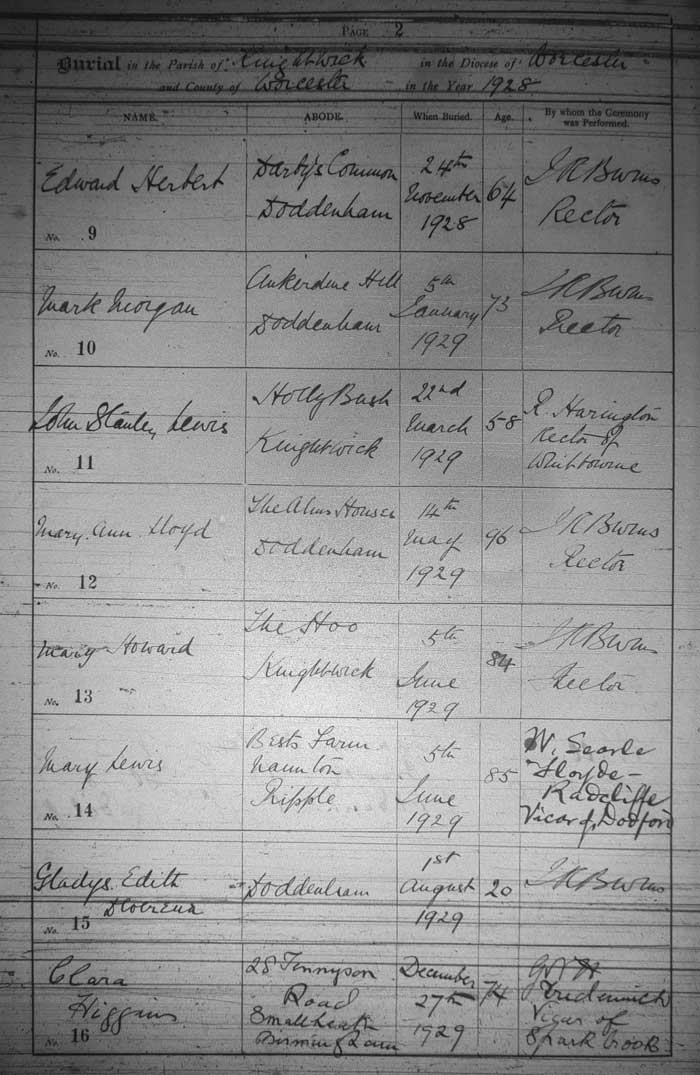 PAGE 2
Burial in the Parish of Knightwick in the Diocese of Worcester
and County of Worcester in the Year 1928
NAME. ABODE. When Buried. Age. By whom the Ceremony was Performed.
Edward Herbert
No. 9
Darby's Common
Doddenham
24th
November
1928
64
Rector
Mark Morgan
No. 10
Ankerdine Hill
Doddenham
5th
January
1929
73
Rector
John Stanley Lewis
No. 11
Holly Bush
Knightwick
22nd
March
1929
58
R. Harington
Rector of
Whitbourne
Mary Ann Lloyd
No. 12
The Alms Houses
Doddenham
14th
May
1929
96
Rector
Mary Howard
No. 13
The Hoo
Knightwick
5th
June
1929
84
Rector
Mary Lewis
No. 14
Bests Farm
Naunton
Ripple
5th
June
1929
85
W. Searle
Floyde-
Radcliffe
Vicar of Dodford
Gladys Edith
No. 15
Doddenham
1st
August
1929
20
Clara
Higgins
No. 16
28 Tennyson
Road
Smallheath
Birmingham
December
27th
1929
74
Vicar of
Sparkbrook